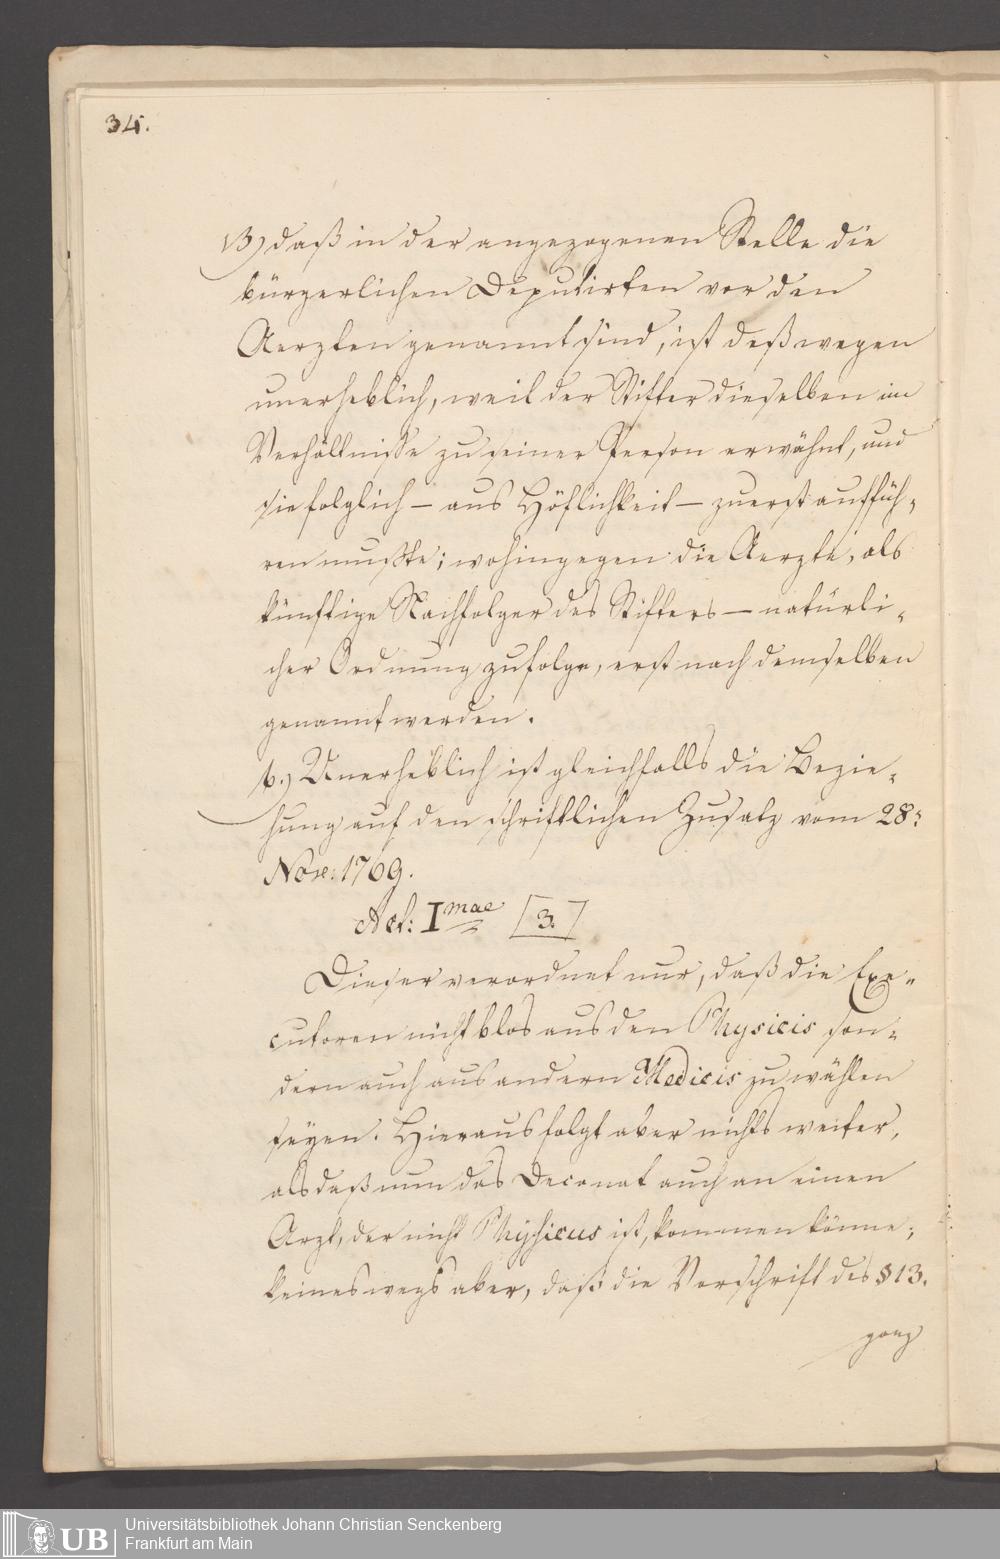 34.
3) daß in der angezogenen Stelle die
bürgerlichen Deputirten vor den
Aerzten genannt sind, ist deßwegen
unerheblich, weil der Stifter dieselben im
Verhältnisse zu seiner Person erwähnt, und
sie folglich – aus Höflichkeit – zuerst auffüh-
ren mußte; wohingegen die Aerzte, als
künftige Nachfolger des Stifters – natürli-
cher Ordnung zufolge, erst nach demselben
genannt werden.
b.) Unerheblich ist gleichfalls die Bezie-
hung auf den schriftlichen Zusatz vom 28:
Nov: 1769.
Act: I mae [3.]
Dieser verordnet nur, daß die Exe-
cutoren nicht blos aus den Physicis son-
dern auch aus andern Medicis zu wählen
seyen. Hieraus folgt aber nichts weiter,
als daß nun das Decanat auch an einen
Arzt, der nicht Physicus ist, kommen könne;
keineswegs aber, daß die Vorschrift des § 13.
ganz
UB
Universitätsbibliothek Johann Christian Senckenberg
Frankfurt am Main